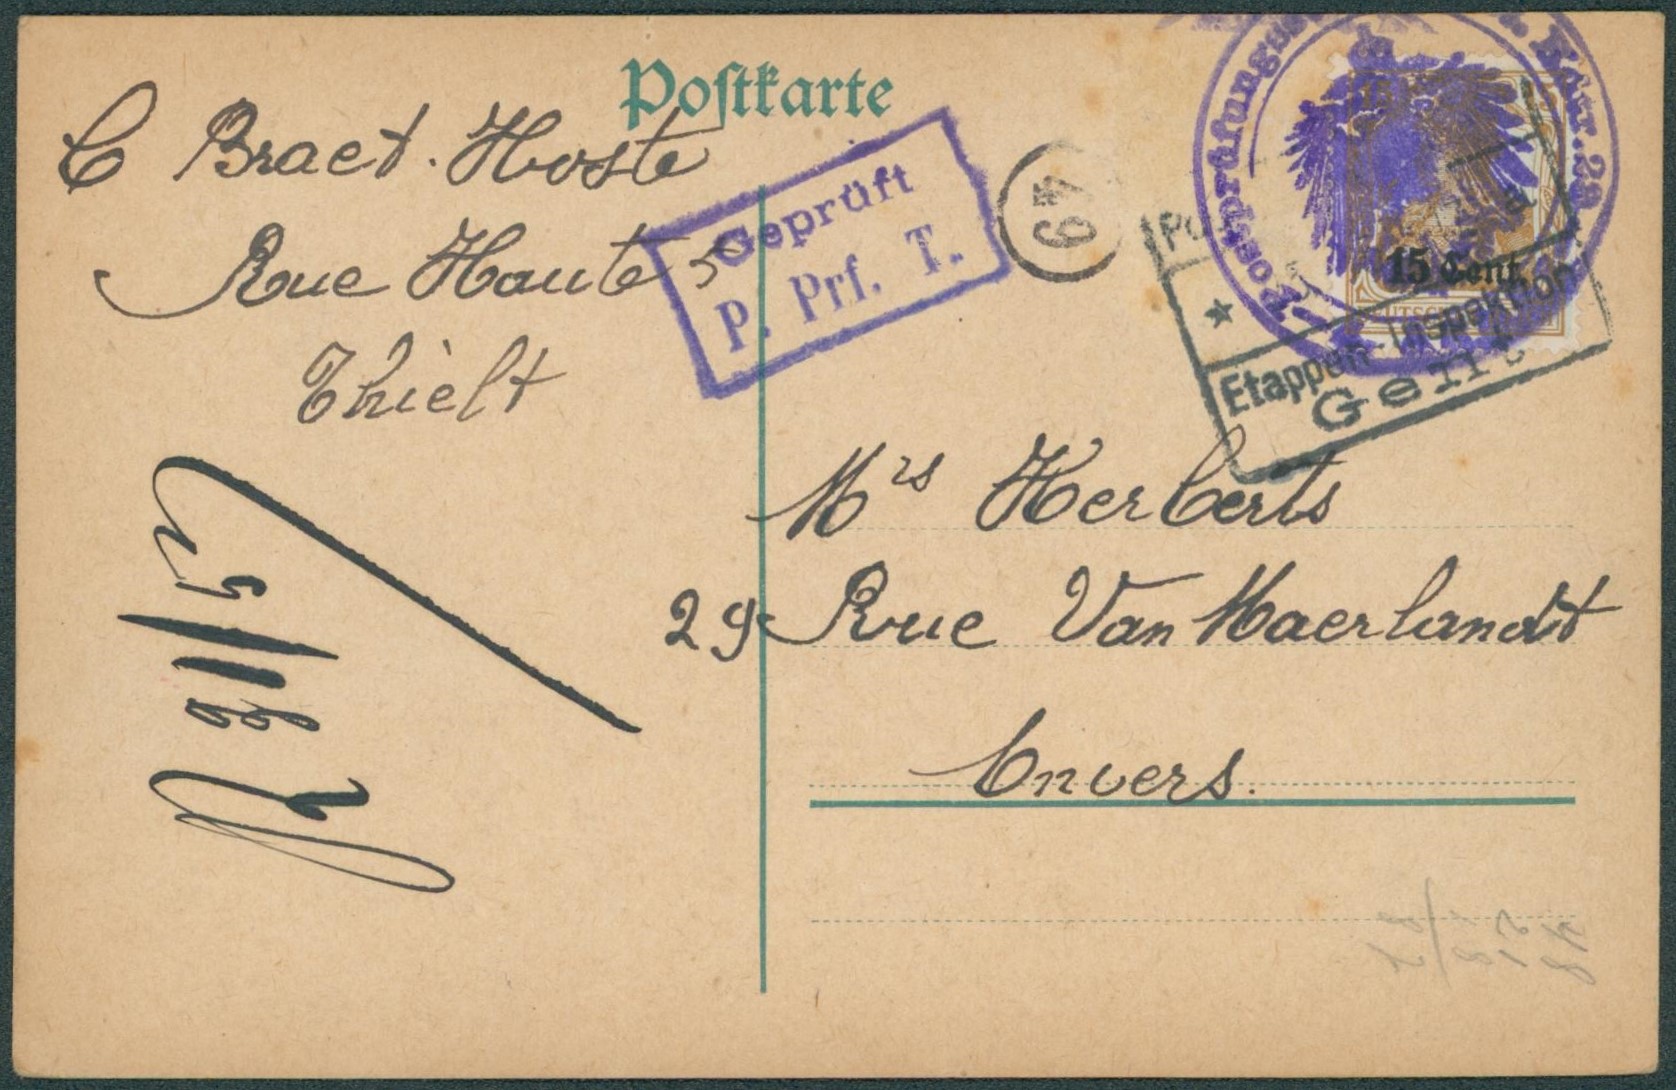 Postkarte
C Braet. Hoste
Rue Haute 5
Thielt
Geprüft
P. Prf. T.
49
15 Cent.
Etappen-Inspektion
Gent
Mrs Herberts
29 Rue Van Maerlandt
Anvers.